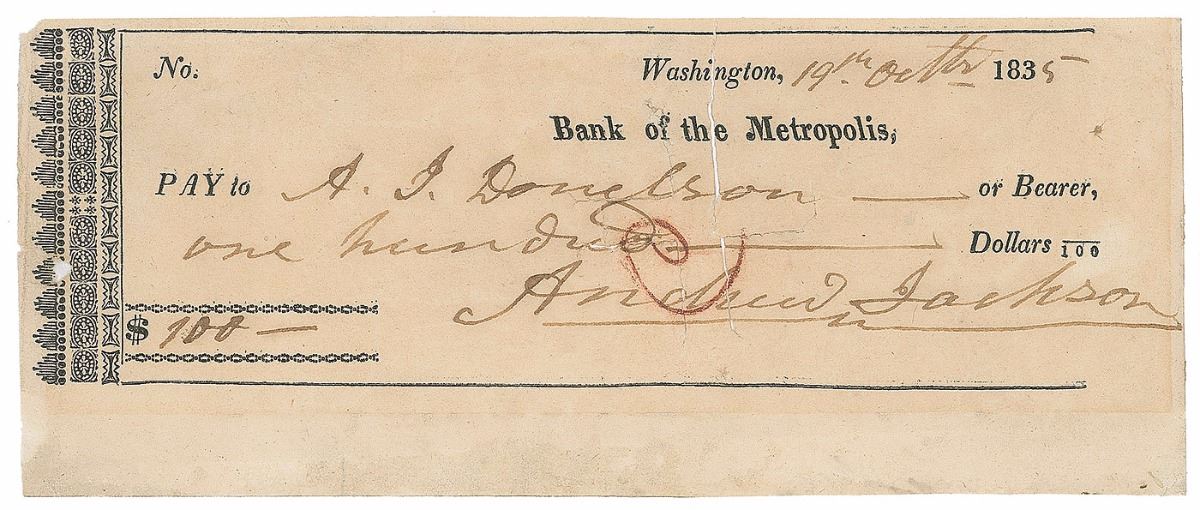 No. Washington, 19th Octbr 1835
Bank of the Metropolis,
PAY to A. J. Donelson — or Bearer,
one hundred — Dollars 100
Andrew Jackson
$ 100 —